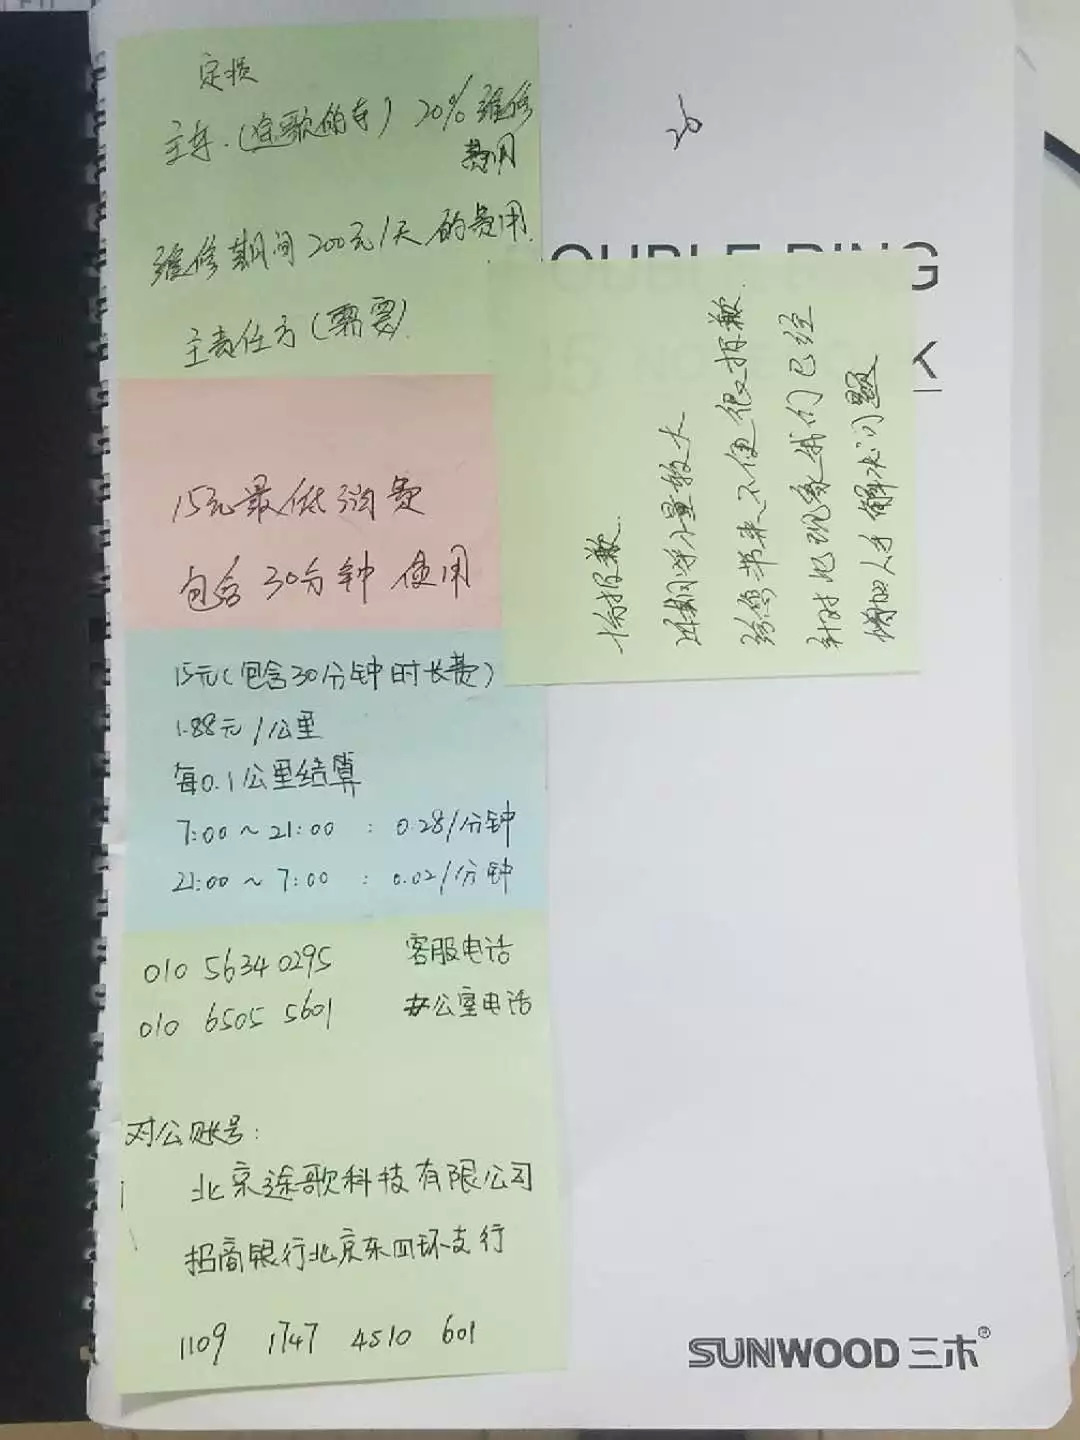 定损
主车.(途歌的车) 20%维修
费用
维修期间200元/天的费用.
主责任方(需要)
15元最低消费
包含30分钟使用
15元(包含30分钟时长费)
1.88元/公里
每0.1公里结算
7:00~21:00 : 0.28/分钟
21:00~7:00 : 0.02/分钟
010 5634 0295 客服电话
010 6505 5601 办公室电话
对公账号:
北京途歌科技有限公司
招商银行北京东四环支行
1109 1747 4510 601
抱歉.
近期单量较大
给您带来不便很抱歉.
针对此现象我们已经
增加人手解决问题
OUBLE RING
K
SUNWOOD三木®